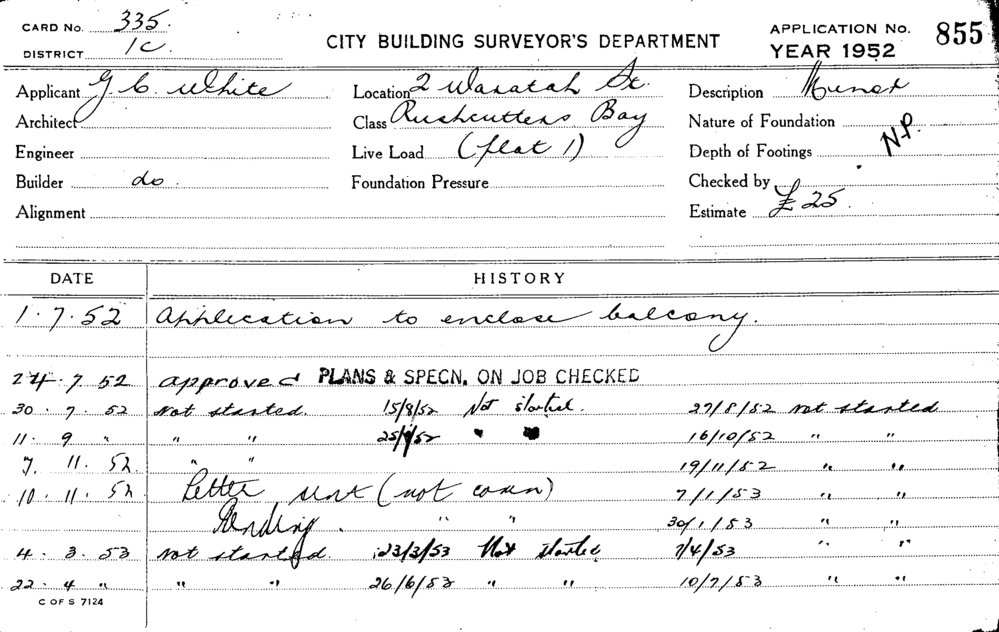 CARD No. 335.
DISTRICT 1C.
CITY BUILDING SURVEYOR'S DEPARTMENT
APPLICATION No. 855
YEAR 1952
Applicant G. C. White Location 2 Waratah St. Description Minor
Architect Class Rushcutters Bay Nature of Foundation
Engineer Live Load (flat 1) Depth of Footings N.P.
Builder do. Foundation Pressure Checked by
Alignment Estimate £25.
DATE HISTORY
1.7.52 Application to enclose balcony.
24.7.52 approved PLANS & SPECN. ON JOB CHECKED
30.7.52 Not started. 15/8/52 Not started. 27/8/52 not started
11.9 " " " 25/9/52 " " 16/10/52 " "
7.11.52 " " 19/11/52 " "
10.11.52 Letter sent (not comn) 7/1/53 " "
Pending. " " 30/1/53 " "
4.3.53 not started. 23/3/53 Not started 7/4/53 " "
22.4 " " " 26/6/53 " " 10/7/53 " "
C OF S 7124